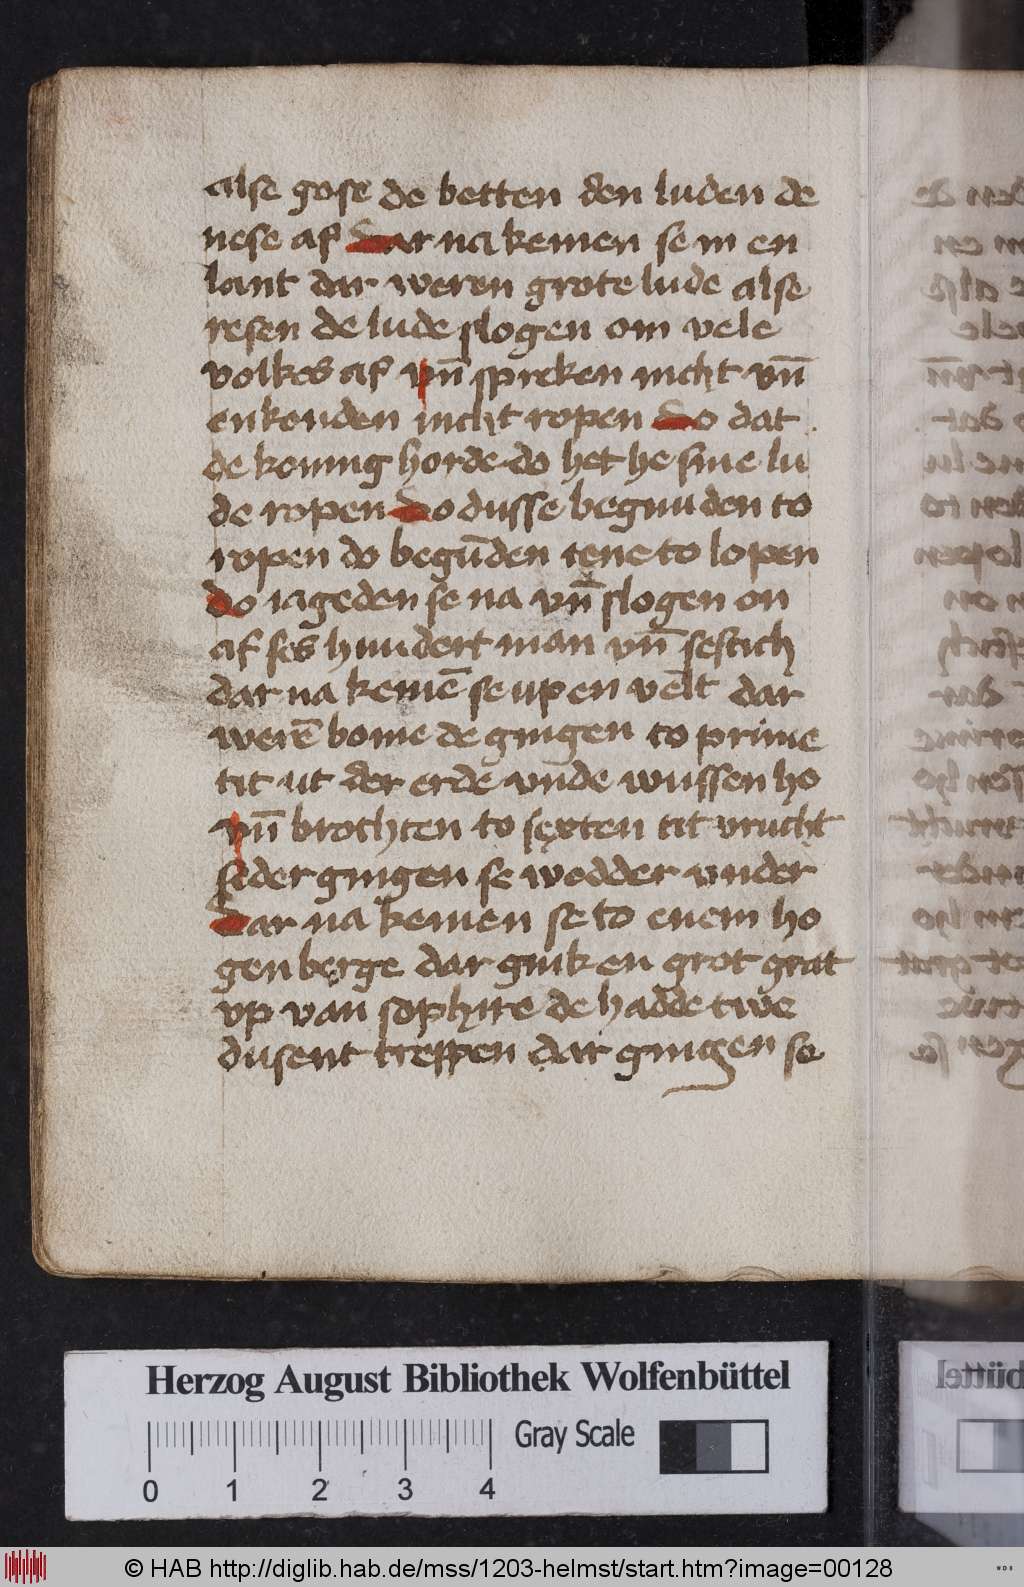 alse gose de betten den luden de
nese af Dar na kemen se in en
lant dar weren grote lude alse
resen de lude slogen om vele
volkes af vn̄ spreken nicht vn̄
en konden nicht ropen Do dat
de koning horde do het he sine lu
de ropen Do dusse begunden to
ropen do begūden iene to lopen
Do iageden se na vn̄ slogen on
af ses hundert man vn̄ sestich
dar na kemē se up en velt dar
werē bome de gingen to prime
tit ut der erde vnde wussen ho
vn̄ brochten to sexten tit vrucht
sider gingen se wedder vnder
Dar na kemen se to enem ho
gen berge dar gink en grot grat
vp van saphire de hadde twe
dusent treppen dar gingen se
Herzog August Bibliothek Wolfenbüttel
Gray Scale
0 1 2 3 4
© HAB http://diglib.hab.de/mss/1203-helmst/start.htm?image=00128